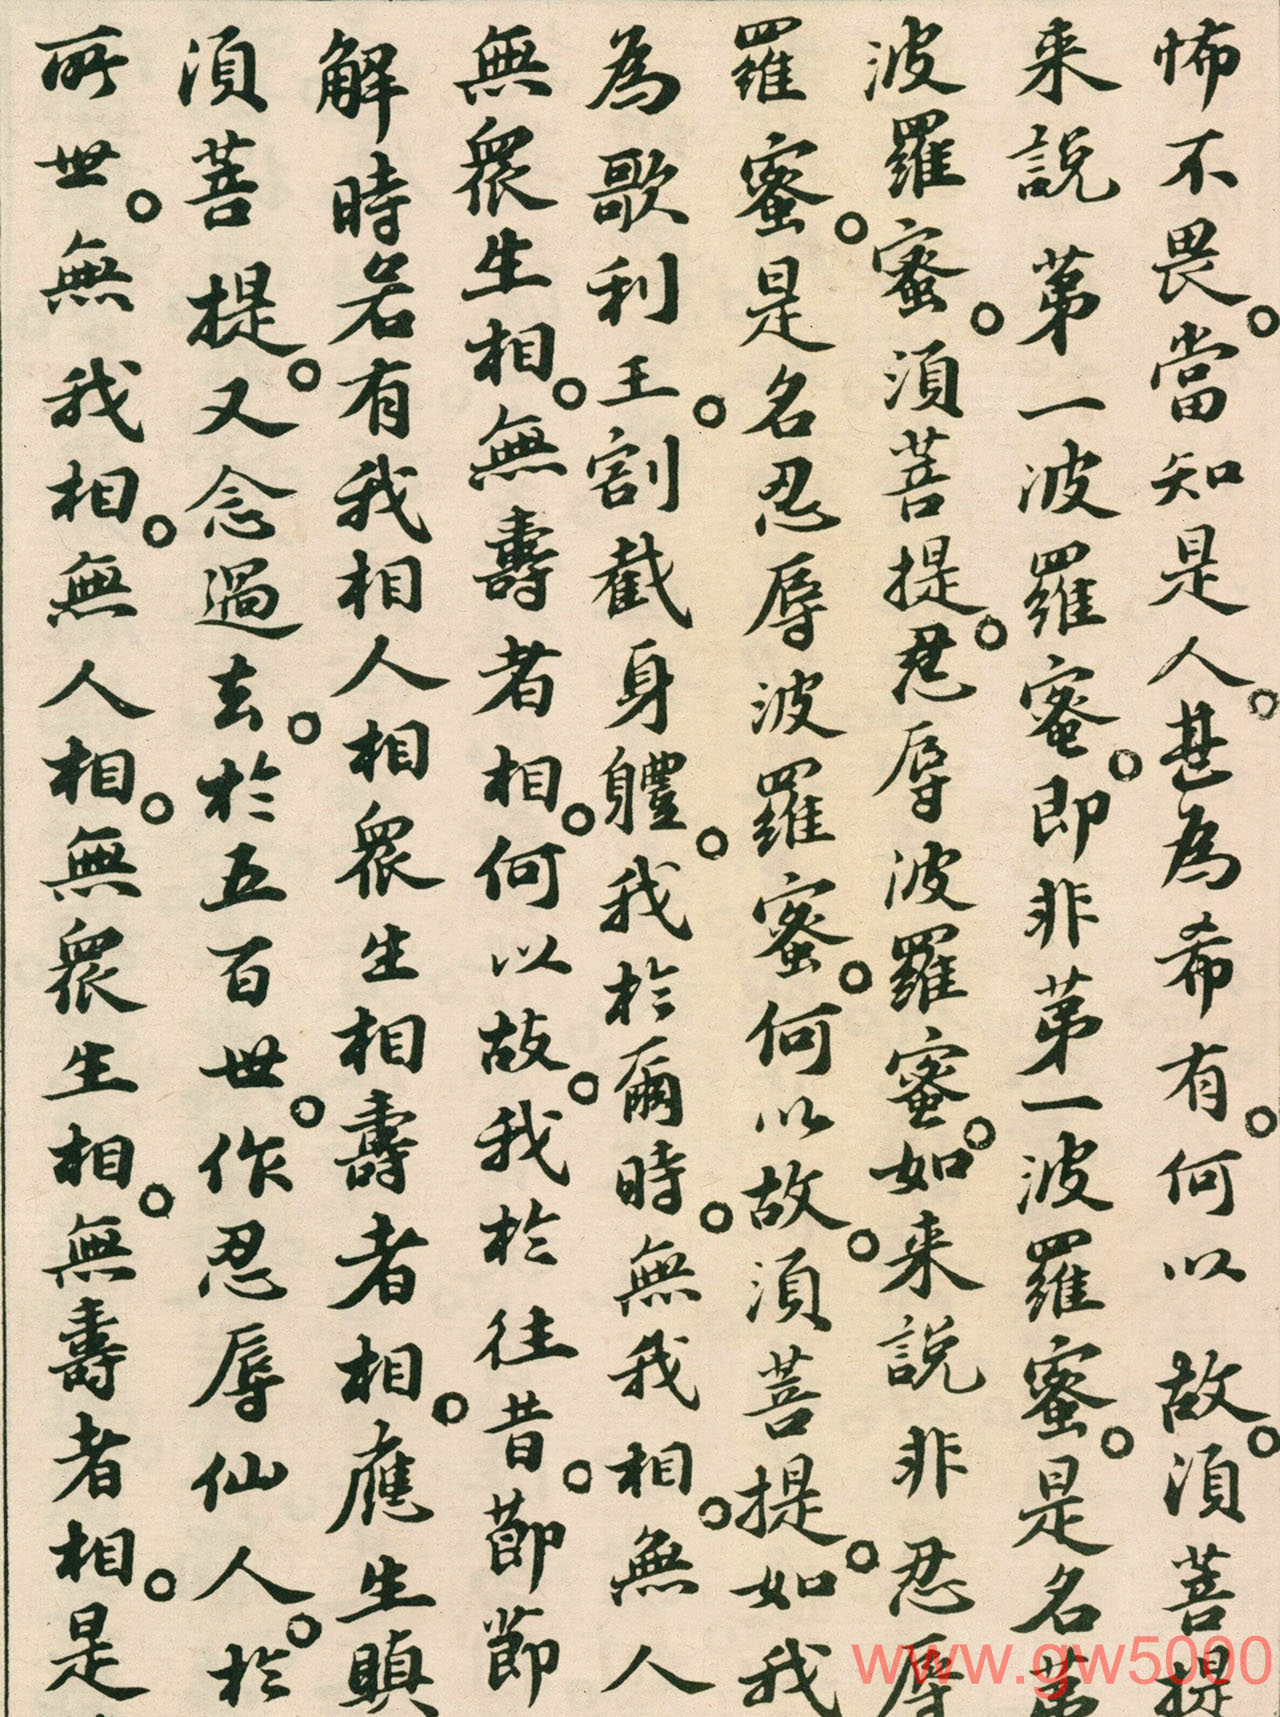 怖不畏。當知是人。甚為希有。何以故。須菩提
来說第一波羅蜜。即非第一波羅蜜。是名第
波羅蜜。須菩提。忍辱波羅蜜。如来說非忍辱
羅蜜。是名忍辱波羅蜜。何以故。須菩提。如我
為歌利王。割截身體。我於爾時。無我相。無人
無眾生相。無壽者相。何以故。我於往昔。節節
解時若有我相人相眾生相壽者相。應生瞋
須菩提。又念過去。於五百世。作忍辱仙人。於
所世。無我相。無人相。無眾生相。無壽者相。是
www.gw5000